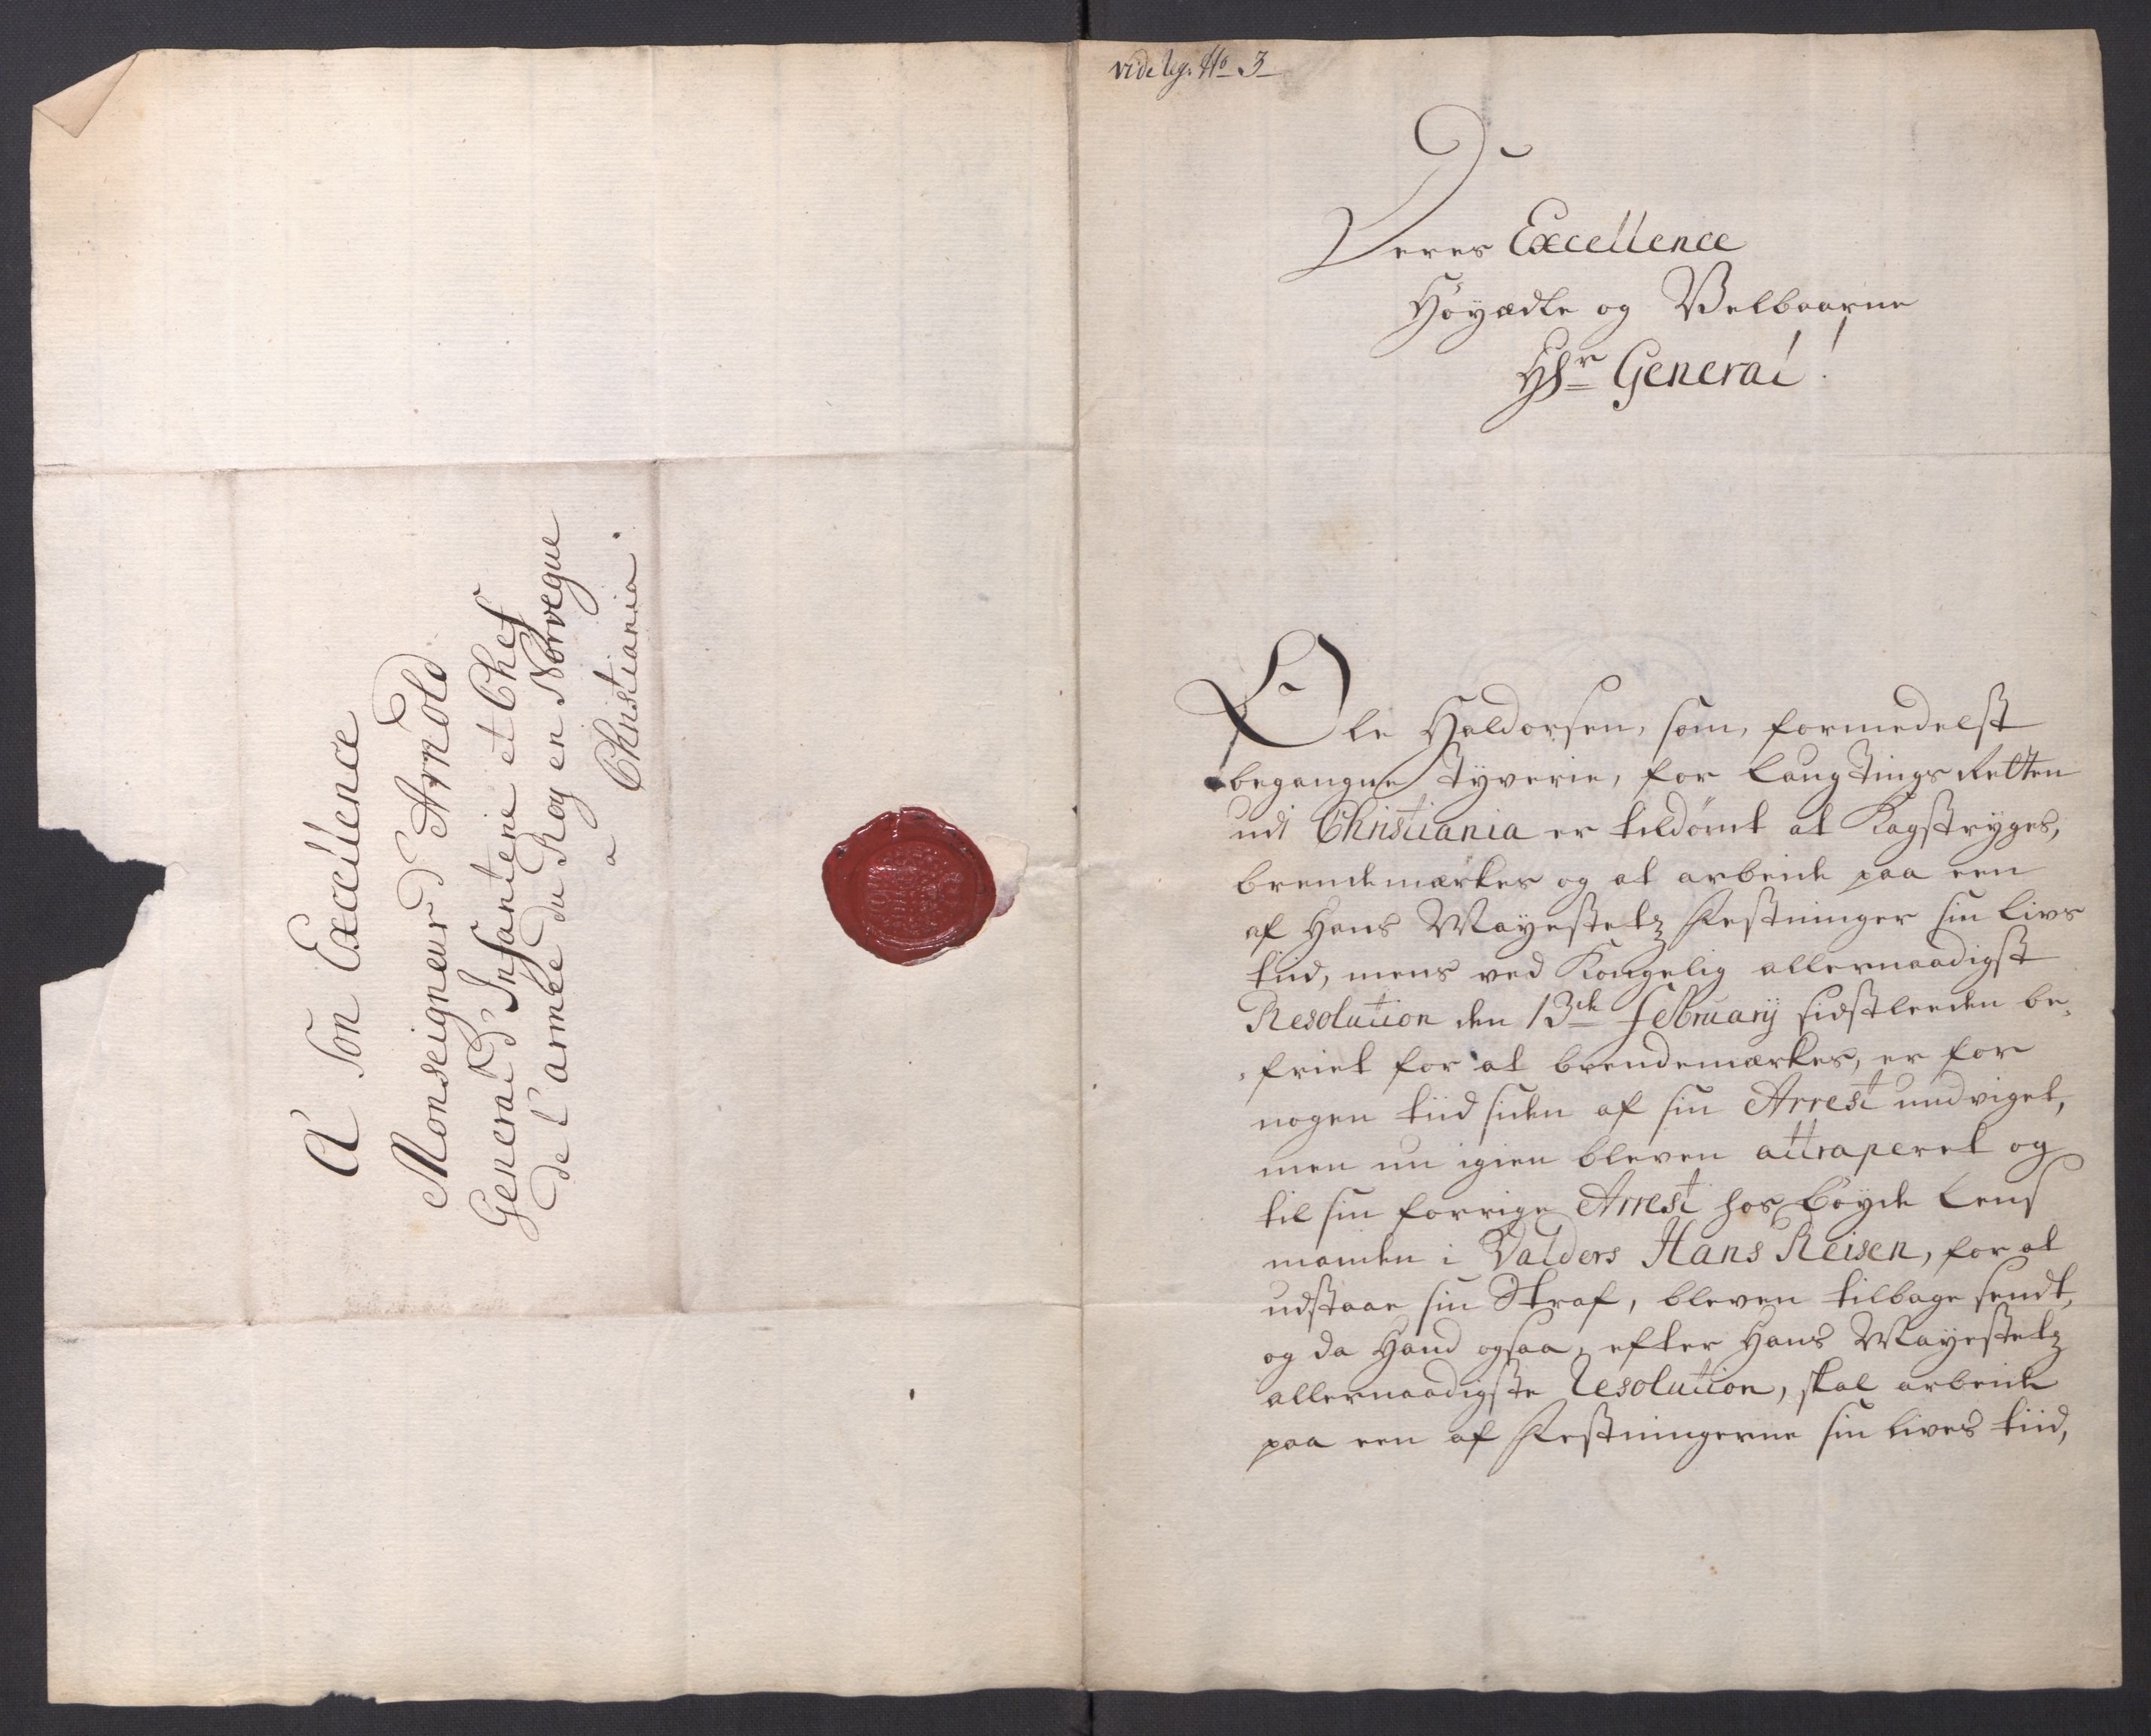 A Son Excellence
Monseigneur d'Arnold
General d'Infanterie et Chef
de l'armée du Roy en Norvegue
a
Christiania.
vide No 3
Deres Excellence
Höyædle og Velbaarne
Hr General!
Ole Haldorsen, som, formedelst
begangne Tyverie, for LaugTings Retten
udi Christiania er tildömt at Kagstryges,
brendemærkes og at arbeide paa een
af Hans Mayestetz Festninger sin livs
tiid, mens ved Kongelig allernaadigst
Resolution den 13de February sidstleeden be¬
friet for at brendemærkes, er for
nogen tiid siden af sin Arrest undviget,
men nu igien bleven attraperet og
til sin forrige Arrest hos böyde Lens
manden i Valders Hans Reisen, for at
udstaae sin Straf, bleven tilbage sendt,
og da Hand ogsaa, efter Hans Mayestetz
allernaadigste Resolution, skal arbeide
paa een af Festningerne sin lives tiid,